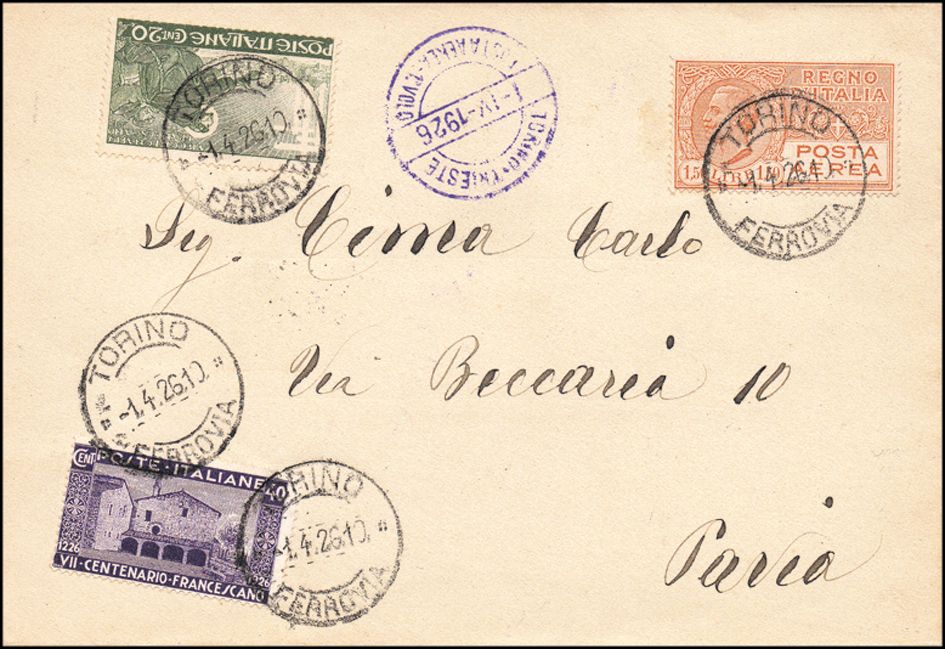 POSTE ITALIANE CENT. 20
TORINO
-1.4.26.10
FERROVIA
POSTA AEREA - I° VOLO
1-IV-1926
TORINO-TRIESTE
REGNO
D'ITALIA
POSTA
AEREA
1,50 LIRE 1,50
TORINO
-1.4.26.10
FERROVIA
Sig. Cima Carlo
Via Beccaria 10
Pavia
TORINO
-1.4.26.10
FERROVIA
CENT POSTE·ITALIANE 40
1226 1926
VII·CENTENARIO·FRANCESCANO
TORINO
-1.4.26.10
FERROVIA